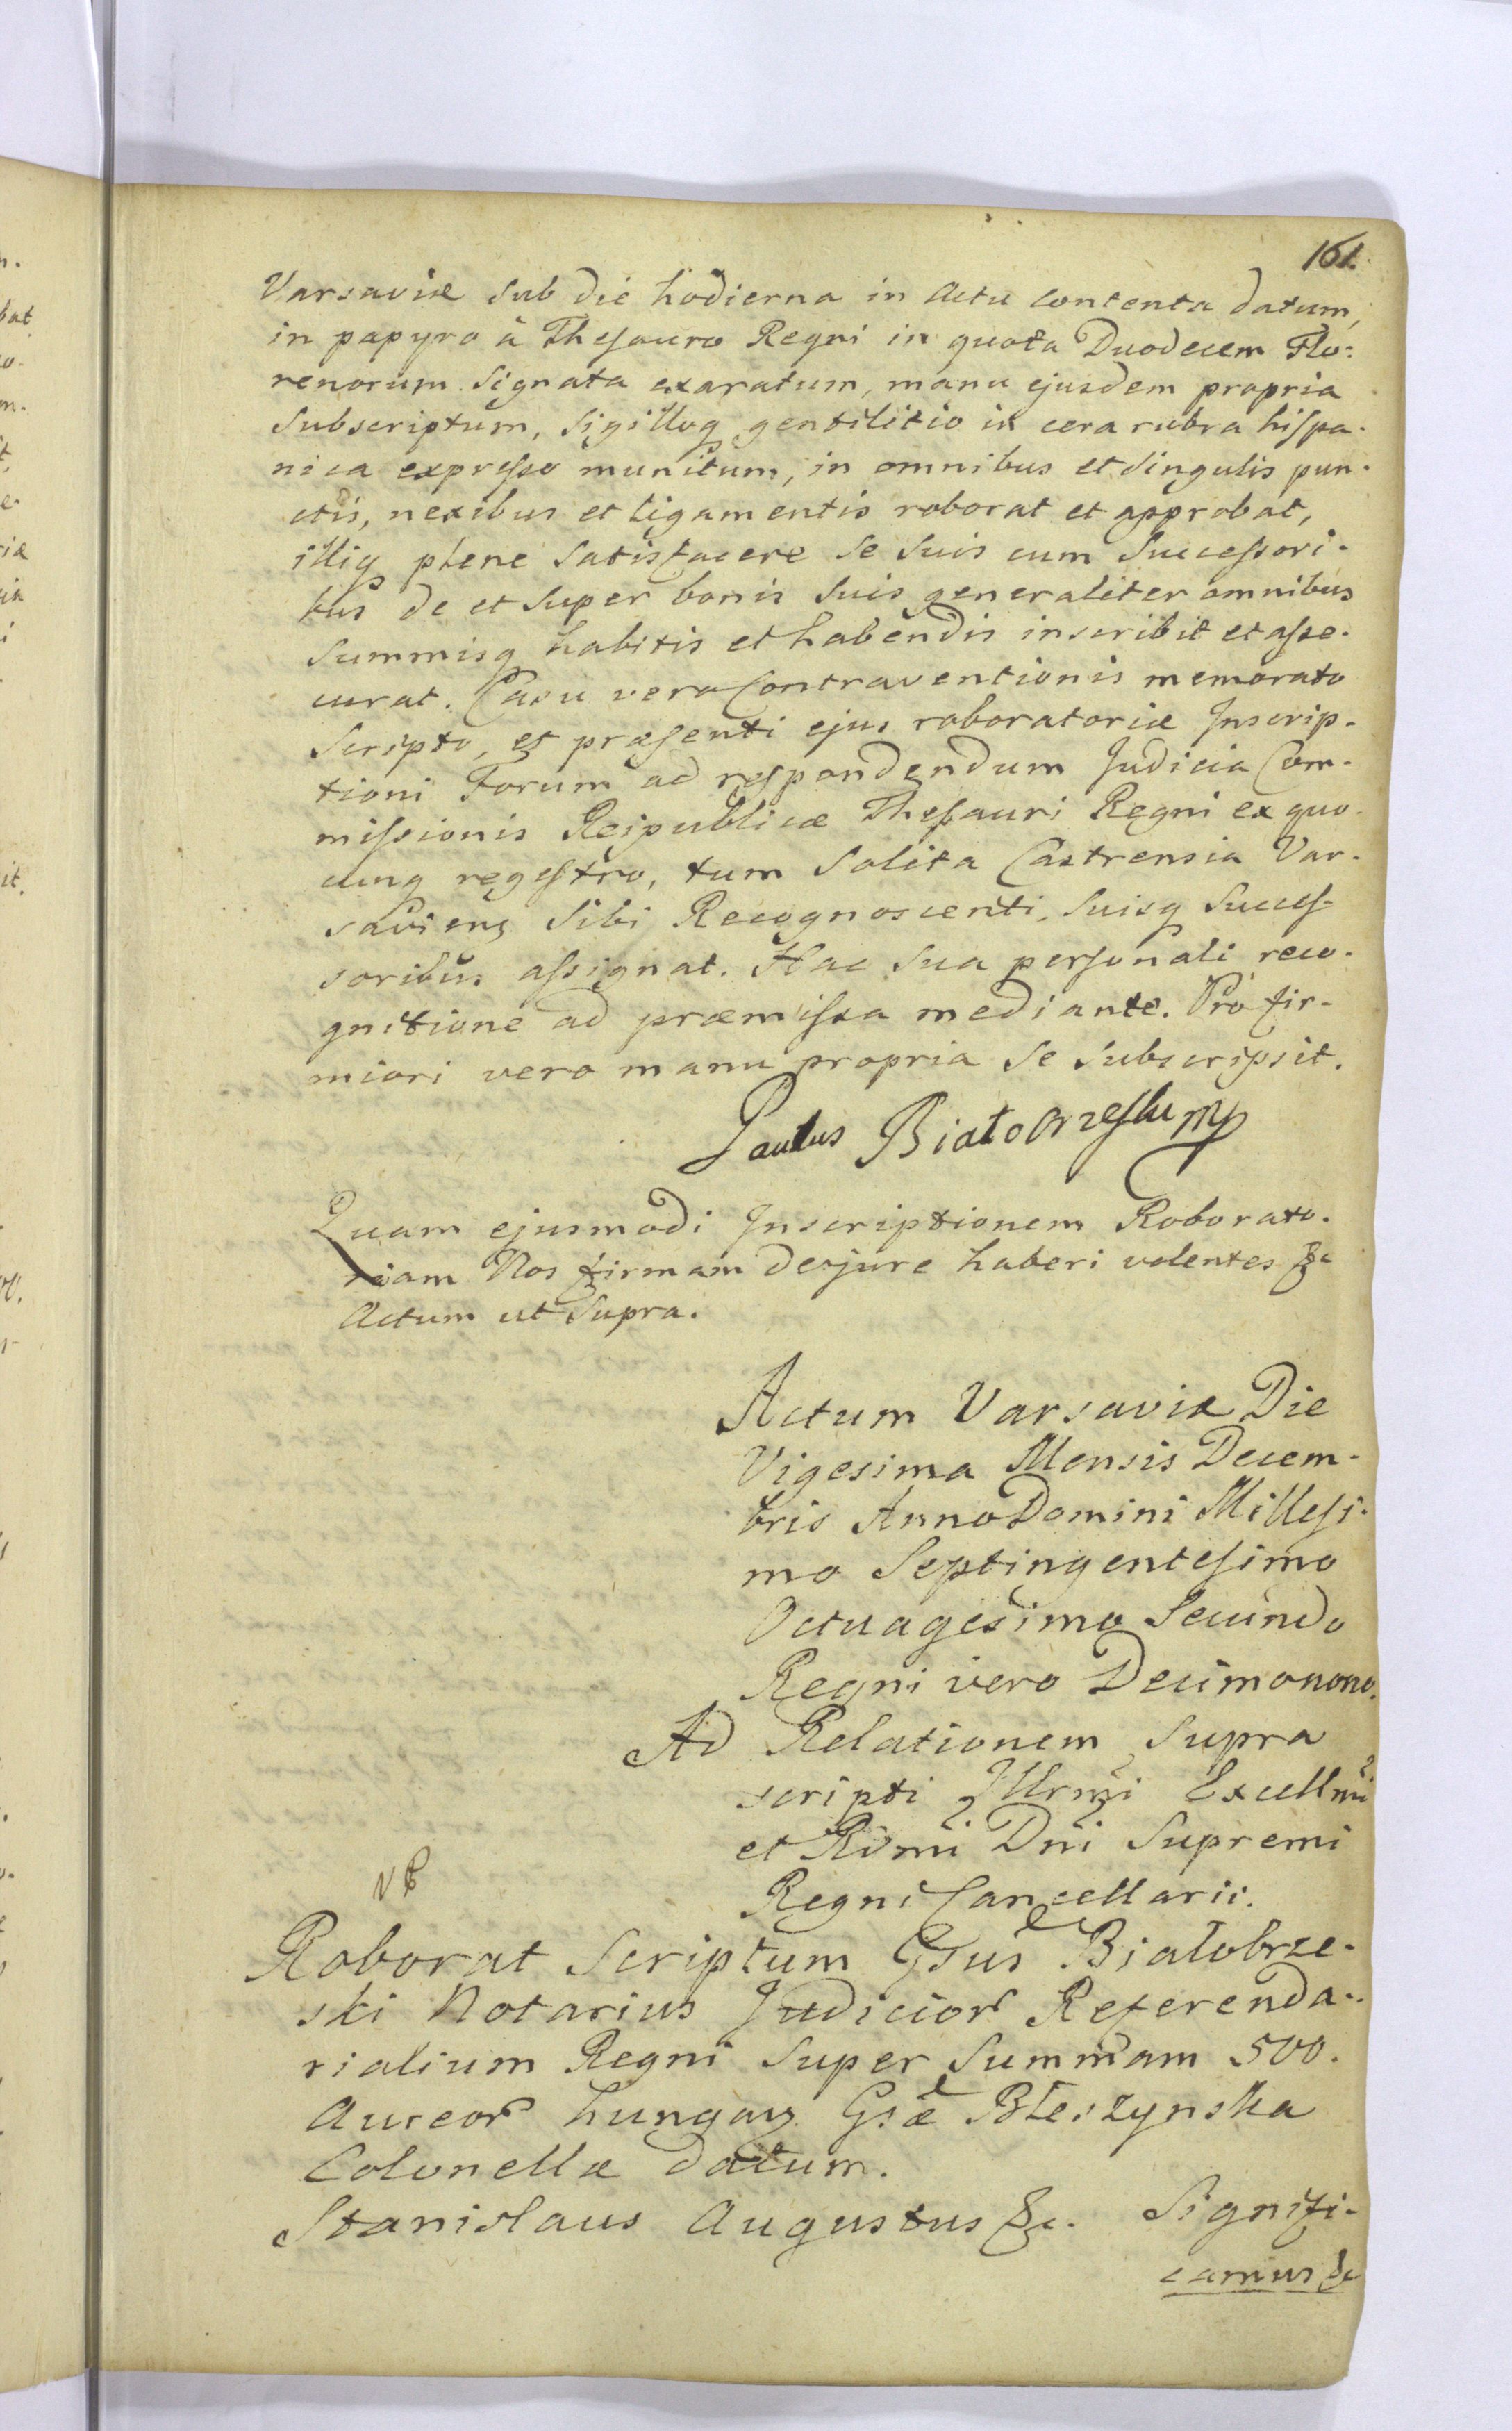 161.
Varsaviæ sub die hodierna in Actu contenta datum,
in papyro à Thesauro Regni in quota Duodecem Flo:
renorum signata exaratum, manu ejusdem propria
subscriptum, sigilloq gentilitio in cera rubra hispa-
nica expresso munitum, in omnibus et singulis pun-
ctis, nexibus et ligamentis roborat et approbat,
illiq plene satisfacere se suis cum successori-
bus de et super bonis suis generaliter omnibus
summisq habitis et habendis inscribit et asse-
curat. Casu vero Contraventionis memorato
scripto, et præsenti ejus roboratoriæ Inscrip-
tioni Forum ad respondendum Judicia Com-
missionis Reipublicæ Thesauri Regni ex quo-
cunq regestro, tum solita Castrensia Var-
saviens sibi Recognoscenti, suisq succes-
soribus assignat. Hac sua personali reco-
gnitione ad præmissa mediante. Pro fir-
miori vero manu propria se subscripsit.
Paulus Białobrzeski mp
Quam ejusmodi Inscriptionem Roborato-
riam Nos firmam dejure haberi volentes &c
Actum ut supra.
Actum Varsaviæ Die
Vigesima Mensis Decem-
bris Anno Domini Millesi-
mo Septingentesimo
Octuagesimo Secundo
Regni vero Decimonono.
Ad Relationem supra
scripti Illrmi Excellmi
et Rdmi Dni Supremi
Regni Cancellarii.
Roborat Scriptum Gsus Białobrze-
ski Notarius Judicior Referenda-
rialium Regni super summam 500.
Aureor hungar Gsæ Błeszynska
Colonellæ datum.
Stanislaus Augustus &c. Signifi-
camus &c